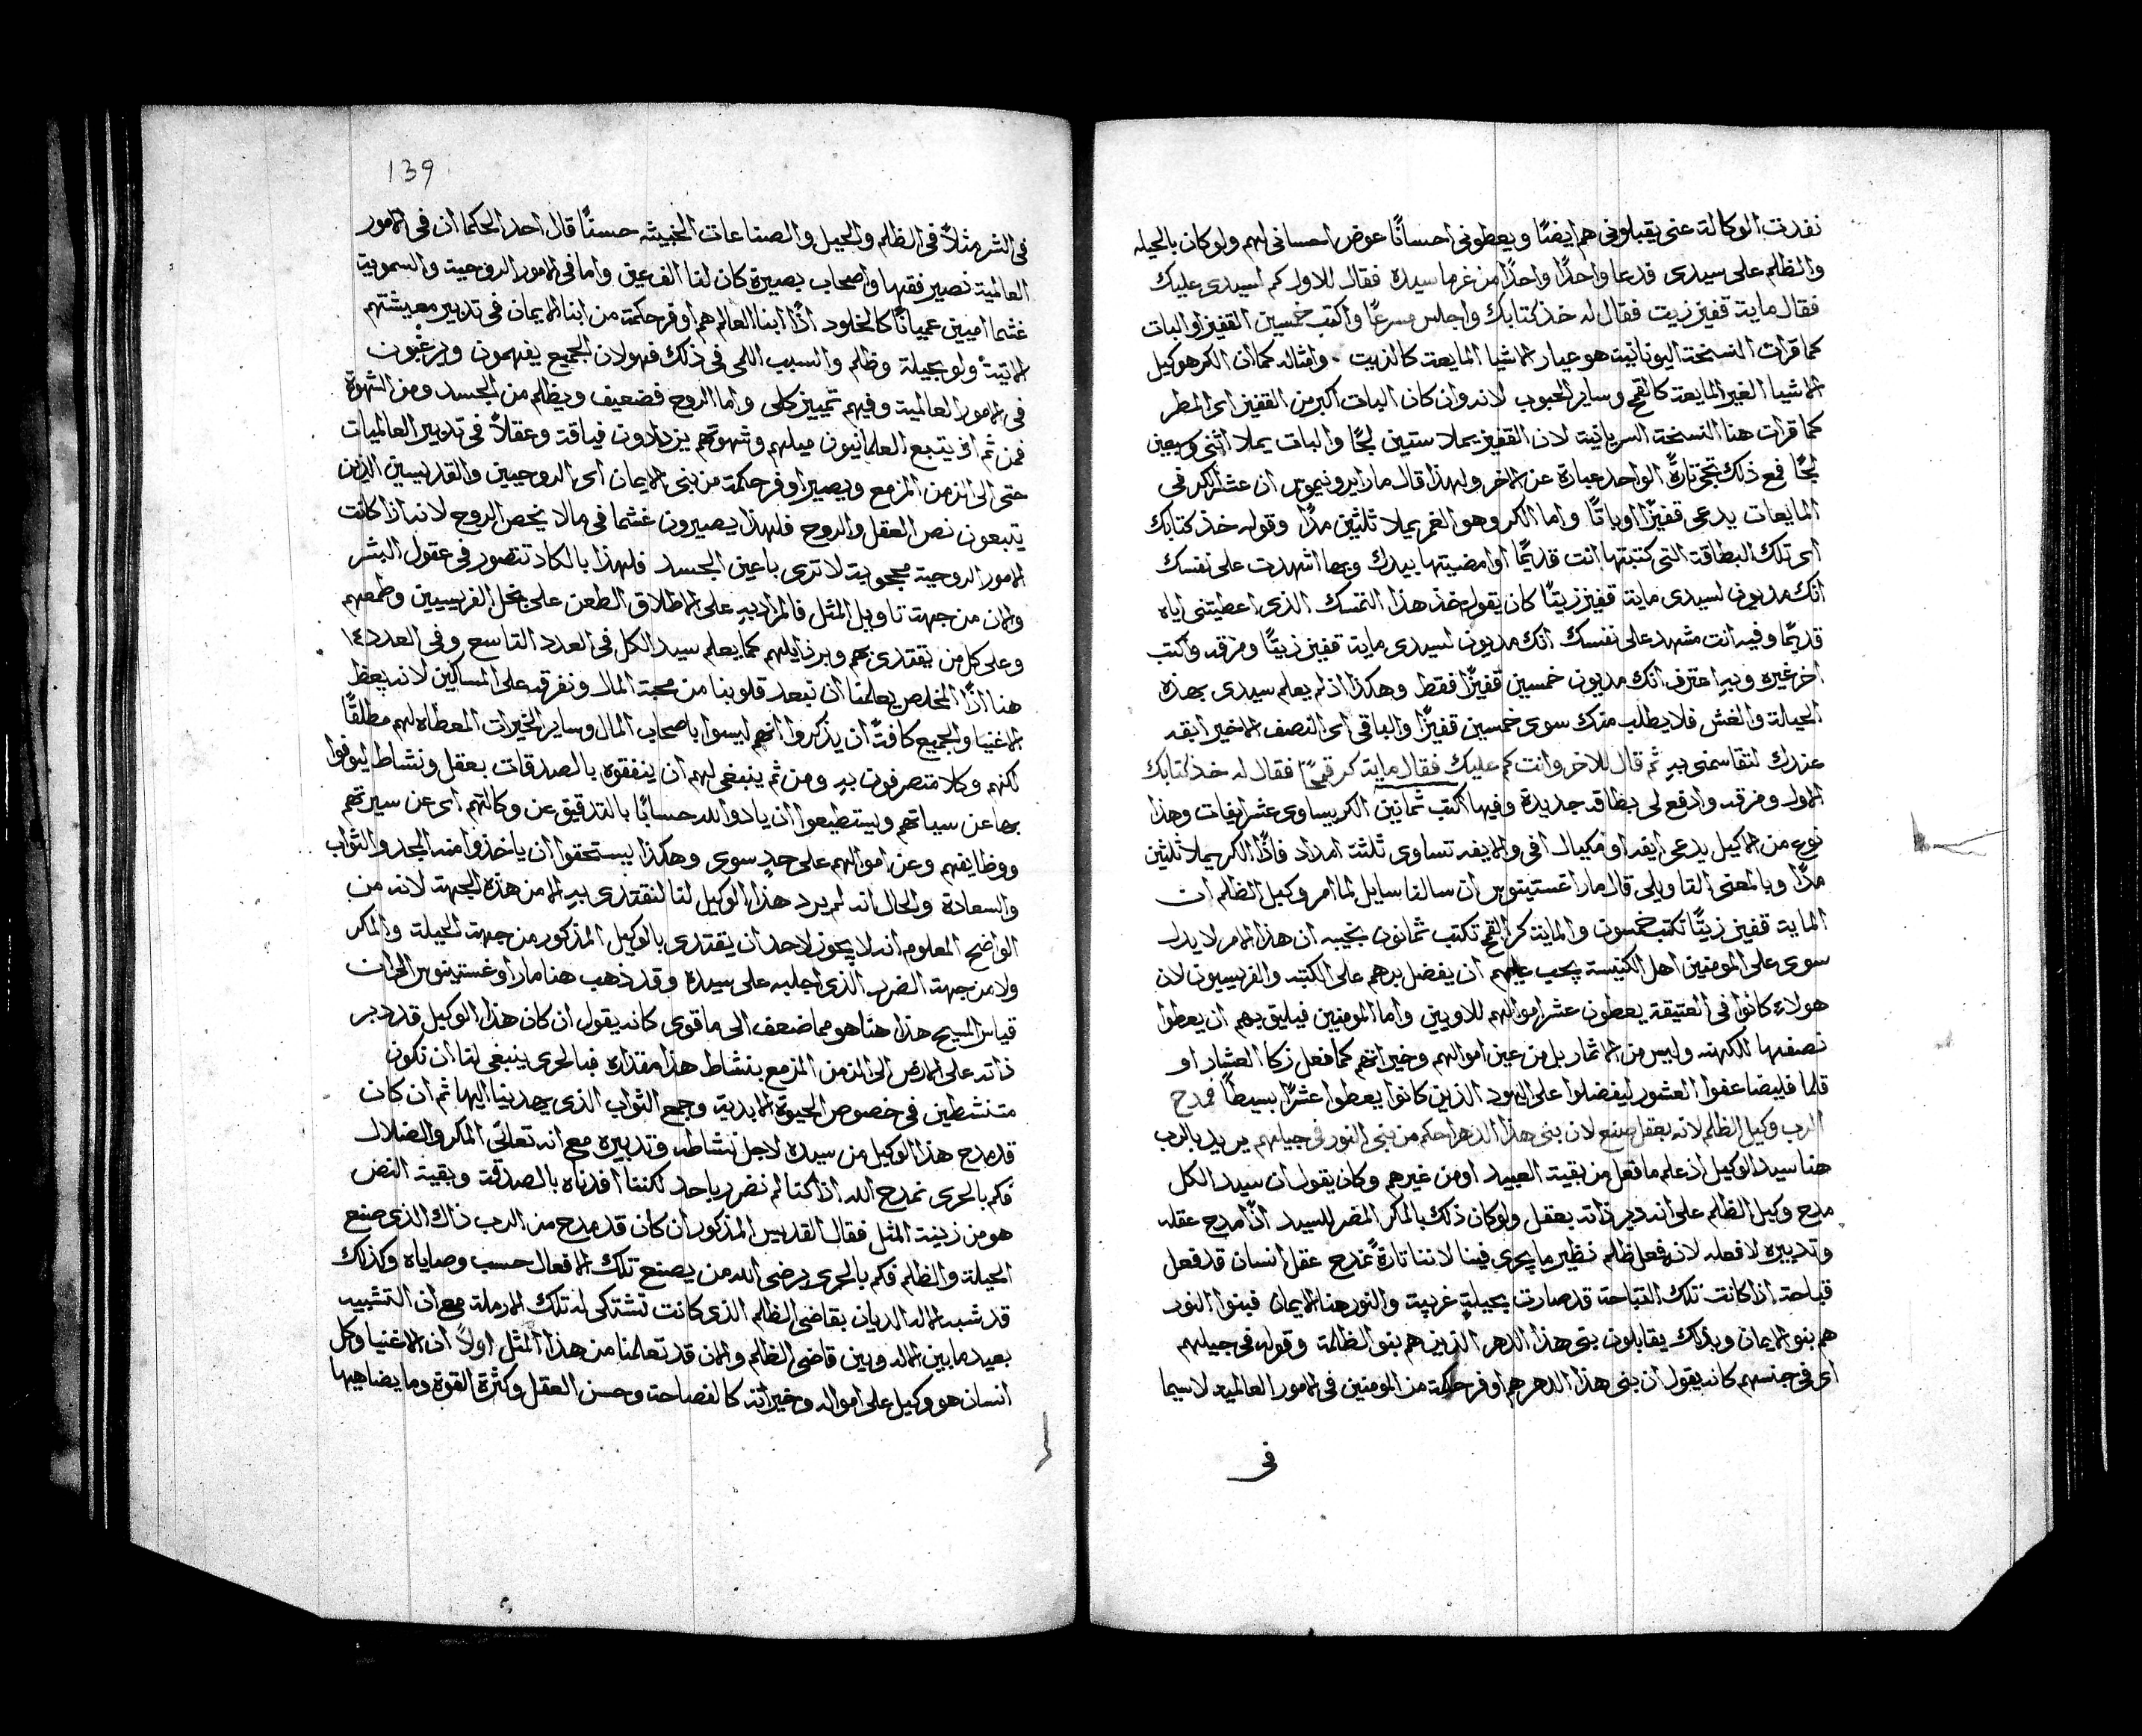 نفدت الوكالة عنى يقبلونى هم ايضًا ويعطونى احسانًا عوض احسانى لهم ولو كان بالحيله
والظلم على سيدى قدعا واحدًا واحدًا من غرما سيده فقال للاول كم لسيدى عليك
فقال ماية قفيز زيت فقال له خذ كتابك واجلس مسرعًا واكتب خمسين القفيز او البات
كما قرات النسخة اليونانية هو عيار الاشيا المايعة كالزيت . وامثاله كما ان الكر هو كيل
الاشيا الغير المايعة كالقمح وساير الحبوب لانه وان كان البات اكبر من القفيز اى المطر
كما قرات هنا النسخة السريانية لان القفيز يملا ستين لجًا والبات يملا اثنى وسبعين
لجًا فمع ذلك تجى تارةً الواحد عبارة عن الاخر ولهذا قال مار ايرونيموس ان عشر الكر فى
المايعات يدعى قفيزًا او باتًا واما الكر وهو الغمر يملا ثلثين مدًا وقوله خذ كتابك
اى تلك البطاقة التى كتبتها انت قديمًا او امضيتها بيدك وبها اشهدت على نفسك
انك مديون لسيدى ماية قفيز زيتًا كان يقول خذ هذا التمسك الذى اعطيتنى اياه
قديمًا وفيه انت مشهد على نفسك انك مديون لسيدى ماية قفيز زيتًا ومزقه واكتب
اخر غيره وبه اعترف انك مديون خمسين قفيزًا فقط وهكذا اذ لم يعلم سيدى بهذه
الحيلة والغش فلا يطلب منك سوى خمسين قفيزًا والباقى اى النصف الاخير ابقه
عندك لتقاسمنى به ثم قال للاخر وانت كم عليك فقال ماية كر قمحًا فقال له خذ كتابك
الاول ومزقه وادفع لى بطاقه جديدة وفيها اكتب ثمانين الكر يساوى عشر ايفات وهذا
نوع من الاكيل يدعى ايفه او مكيال افى والايفه تساوى ثلثة امداد فاذًا الكر يملا ثلثين
مدًا وبالمعنى التاويلى قال مار اغستينوس ان سالنا سايل لما امر وكيل الظلم ان
الماية قفيز زيتًا تكتب خمسون والماية كر القمح تكتب ثمانون نجيبه ان هذا الامر لا يدل
سوى على المومنين اهل الكنيسة يجب عليهم ان يفضل برهم على الكتبه والفريسيون لان
هولاء كانوا فى العتيقة يعطون عشر اموالهم للاويين واما المومنين فيليق بهم ان يعطوا
نصفها للكهنه وليس من الاثمار بل من عين اموالهم وخيراتهم كما فعل زكا العشار او
قلما فليضاعفوا العشور ليفضلوا على اليهود الذين كانوا يعطوا عشرًا بسيطًا فمدح
الرب وكيل الظلم لانه بعقل صنع لان بنى هذا الدهر احكم من بنى النور فى جيلهم يريد بالرب
هنا سيد الوكيل اذ علم ما فعل من بقية العبيد او من غيرهم وكان يقول ان سيد الكل
مدح وكيل الظلم على انه دبر ذاته بعقل ولو كان ذلك بالمكر المضر للسيد اذًا مدح عقله
وتدبيره لا فعله لانه فعل ظلم نظير ما يجرى فينا لاننا تارةً نمدح عقل انسان قد فعل
قباحة اذا كانت تلك القباحة قد صارت بحيلةٍ غريبة والنور هنا الايمان فبنوا النور
هم بنو الايمان وبذلك يقابلون بنى هذا الدهر الذين هم بنو الظلمة وقوله فى جيلهم
اى فى جنسهم كانه يقول ان بنى هذا الدهر هم اوفر حكمة من المومنين فى الامور العالميه لاسيما
فى
139
فى الشر مثلاً فى الظلم والحيل والصناعات الخبيثه حسنًا قال احد الحكما ان فى الامور
العالمية نصير فقها واصحاب بصيرة كان لنا الف عين واما فى الامور الروحية والسموية
غشما اميين عميانًا كالخلود اذًا ابنا العالم هم اوفر حكمة من ابنا الايمان فى تدبير معيشتهم
الاتية ولو بحيلة وظلم والسبب اللمى فى ذلك فهو لان الجميع يفهمون ويرغبون
فى الامور العالمية وفيهم تمييز كلى واما الروح فضعيف ويظلم من الجسد ومن الشهوة
فمن ثم اذ يتبع العلمانيون ميلهم وشهوتهم يزدادون فياقة وعقلاً فى تدبير العالميات
حتى الى الزمن المزمع ويصير اوفر حكمة من بنى الايمان اى الروحيين والقديسين الذين
يتبعون نص العقل والروح فلهذا يصيرون غشما فى ما لا يخص الروح لانه اذا كانت
الامور الروحية محجوبة لا ترى باعين الجسد فلهذا بالكاد تتصور فى عقول البشر
والان من جهة تاويل المثل فالمراد به على الاطلاق الطعن على بخل الفريسيين وطمعهم
وعلى كل من يقتدى بهم وبرذايلهم كما يعلم سيد الكل فى العدد التاسع وفى العدد ١٤
هنا اذًا المخلص يعلمنا ان نبعد قلوبنا من محبة المال ونفرقه على المساكين لانه يعظ
الاغنيا والجميع كافتًا ان يذكروا انهم ليسوا باصحاب المال وساير الخيرات المعطاه لهم مطلقًا
لكنهم وكلا متصرفون به ومن ثم ينبغى لهم ان ينفقوه بالصدقات بعقل ونشاط ليوفوا
بها عن سياتهم ويستطيعوا ان يادوا لله حسابًا بالتدقيق عن وكالتهم اى عن سيرتهم
ووظايفهم وعن اموالهم على حدٍ سوى وهكذا يستحقوا ان ياخذوا منه المجد والثواب
والسعادة والحال انه لم يرد هذا الوكيل لنا لنقتدى به الا من هذه الجهة لانه من
الواضح المعلوم انه لا يجوز لاحد ان يقتدى بالوكيل المذكور من جهة الحيلة والمكر
ولا من جهة الضرر الذى اجلبه على سيده وقد ذهب هنا مار اوغستينوس الى ان
قياس المسيح هذا هنا هو مما ضعف الى ما قوى كانه يقول ان كان هذا الوكيل قد دبر
ذاته على الارض الى الزمن المزمع بنشاط هذا مقداره فبالحرى ينبغى لنا ان نكون
متنشطين فى خصوص الحيوة الابدية وجمع الثواب الذى يهدينا اليها ثم ان كان
قد مدح هذا الوكيل من سيده لاجل نشاطه وتدبيره مع انه تعاطى المكر والضلال
فكم بالحرى نمدح الله اذا كنا لم نضرر باحد لكننا افدناه بالصدقة وبقية النص
هو من زينة المثل فقال القديس المذكور ان كان قد مدح من الرب ذاك الذى صنع
الحيلة والظلم فكم بالحرى يرضى الله من يصنع تلك الافعال حسب وصاياه وكذلك
قد شبه الاله الديان بقاضى الظلم الذى كانت تشتكى له تلك الارملة مع ان التشبيه
بعيد ما بين الاله وبين قاضى الظلم والان قد تعلمنا من هذا المثل اولاً ان الاغنيا وكل
انسان هو وكيل على امواله وخيراته كالفصاحة وحسن العقل وكثرة القوة وما يضاهيها